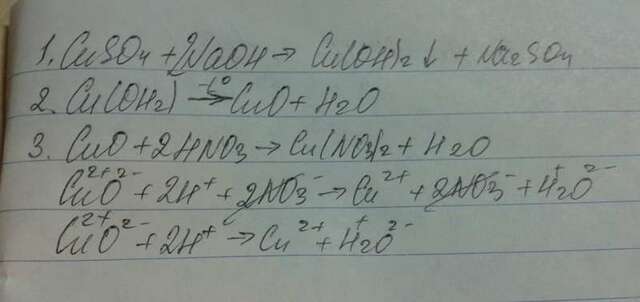 1. CuSO4 + 2NaOH → Cu(OH)2 ↓ + Na2SO4
2. Cu(OH2) t°→ CuO + H2O
3. CuO + 2HNO3 → Cu(NO3)2 + H2O
Cu²⁺O²⁻ + 2H⁺ + 2NO3⁻ → Cu²⁺ + 2NO3⁻ + H⁺2O²⁻
Cu²⁺O²⁻ + 2H⁺ → Cu²⁺ + H⁺2O²⁻